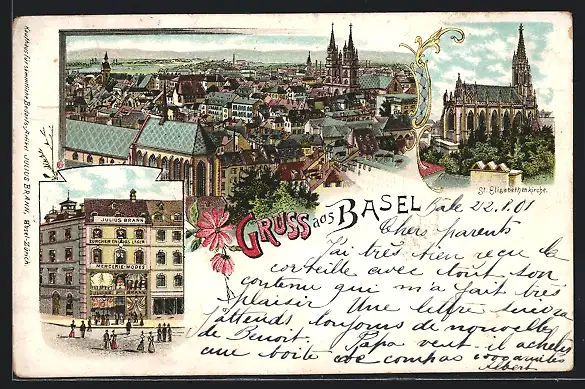 Kaufhaus für sämmtliche Bedarfsartikel JULIUS BRANN, Basel-Zürich
St. Elisabethenkirche.
JULIUS BRANN
ZÜRCHER ENGROS LAGER
MERCERIE-MODES
GRUSS aus BASEL
Bâle 22.1.01
Chers parents
J'ai très bien reçu la
corbeille avec tout son
contenu qui m'a fait très
plaisir Une lettre suivra
J'attends toujours de nouvelles
de Benoit. Papa veut-il acheter
une boîte de compas
Albert